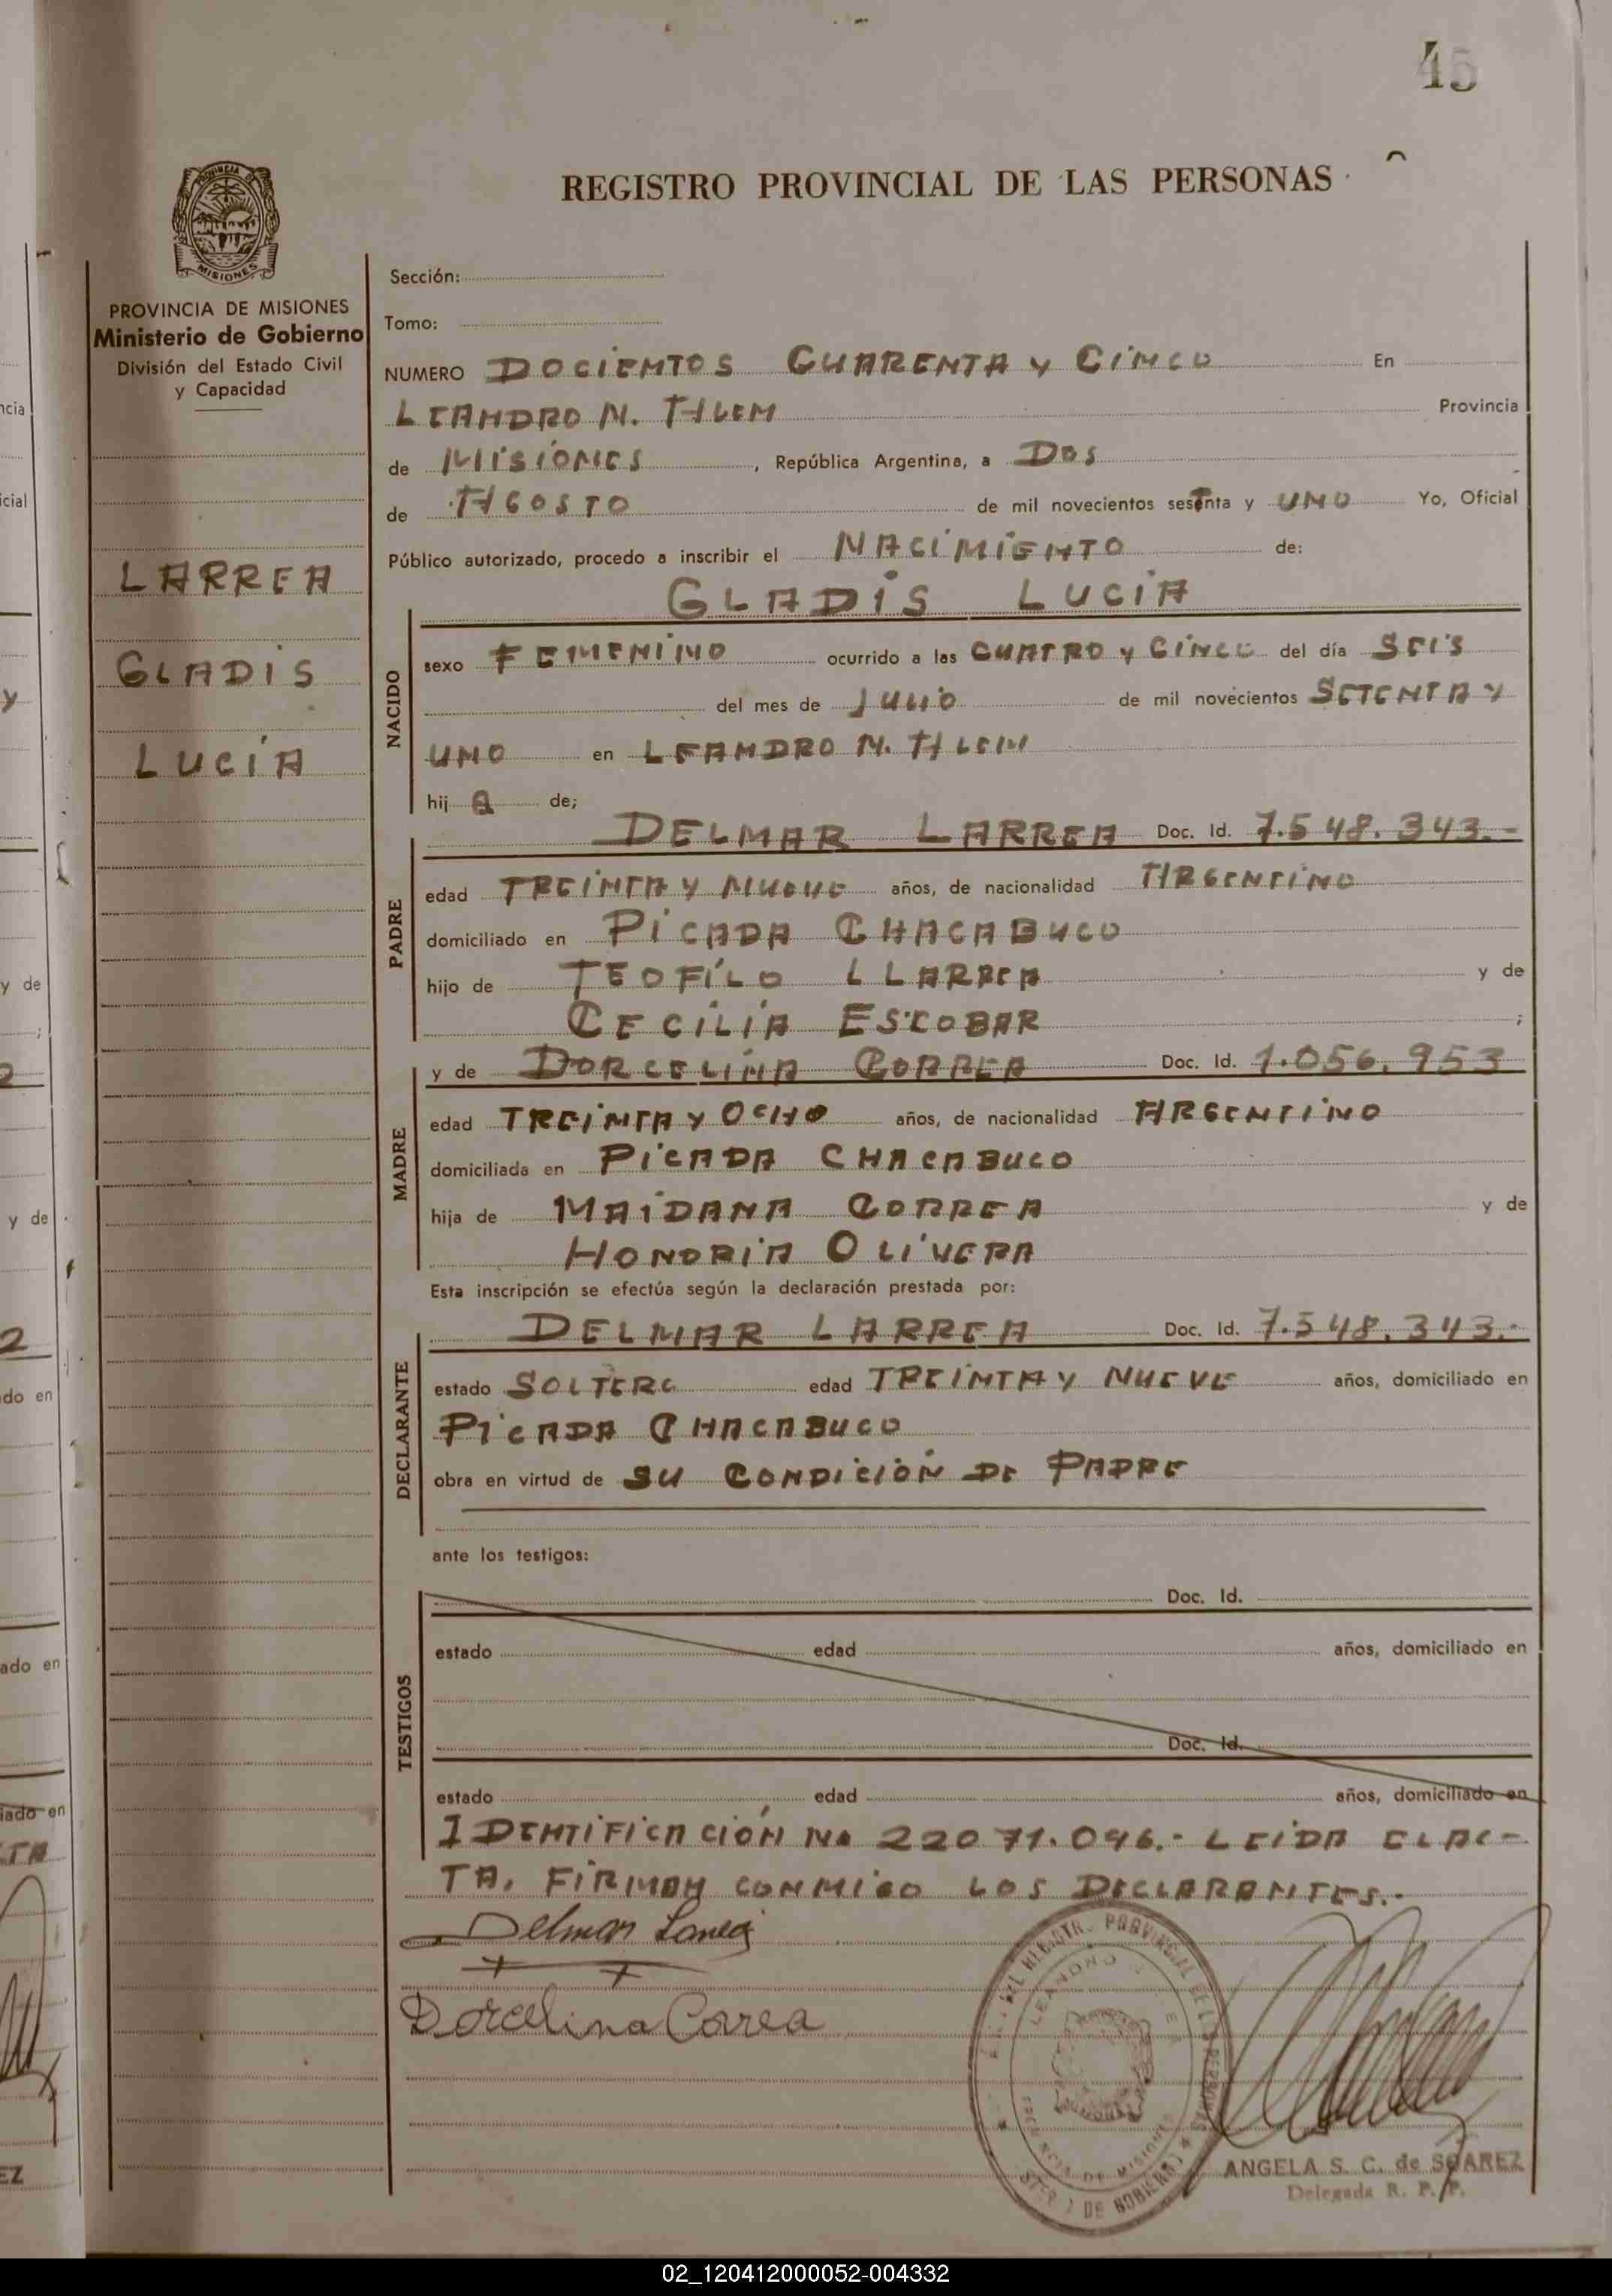 45
REGISTRO PROVINCIAL DE LAS PERSONAS
PROVINCIA DE MISIONES
Ministerio de Gobierno
División del Estado Civil
y Capacidad
LARREA
GLADIS
LUCIA
Sección:
Tomo:
NUMERO DOCIENTOS CUARENTA y CINCO En
LEANDRO N. ALEM Provincia
de MISIONES, República Argentina, a DOS
de AGOSTO de mil novecientos setenta y UNO Yo, Oficial
Público autorizado, procedo a inscribir el NACIMIENTO de:
GLADIS LUCIA
NACIDO
sexo FEMENINO ocurrido a las CUATRO y CINCO del día SEIS
del mes de JULIO de mil novecientos SETENTA Y
UNO en LEANDRO N. ALEM
hij a de;
PADRE
DELMAR LARREA Doc. Id. 7.548.343.-
edad TREINTA Y NUEVE años, de nacionalidad ARGENTINO
domiciliado en PICADA CHACABUCO
hijo de TEOFILO LLARREA y de
CECILIA ESCOBAR ;
MADRE
y de DORCELINA CORREA Doc. Id. 1.056.953
edad TREINTA Y OCHO años, de nacionalidad ARGENTINO
domiciliada en PICADA CHACABUCO
hija de MAIDANA CORREA y de
HONORIA OLIVERA
Esta inscripción se efectúa según la declaración prestada por:
DECLARANTE
DELMAR LARREA Doc. Id. 7.548.343.-
estado SOLTERO edad TREINTA Y NUEVE años, domiciliado en
PICADA CHACABUCO
obra en virtud de SU CONDICIÓN DE PADRE
ante los testigos:
TESTIGOS
Doc. Id.
estado edad años, domiciliado en
Doc. Id.
estado edad años, domiciliado en
IDENTIFICACIÓN No 22071.096.- LEIDA EL AC-
TA, FIRMAN CONMIGO LOS DECLARANTES.-
Delmar Larrea
Dorcelina Correa
ANGELA S. C. de SUAREZ
Delegada R. P. P.
02_120412000052-004332